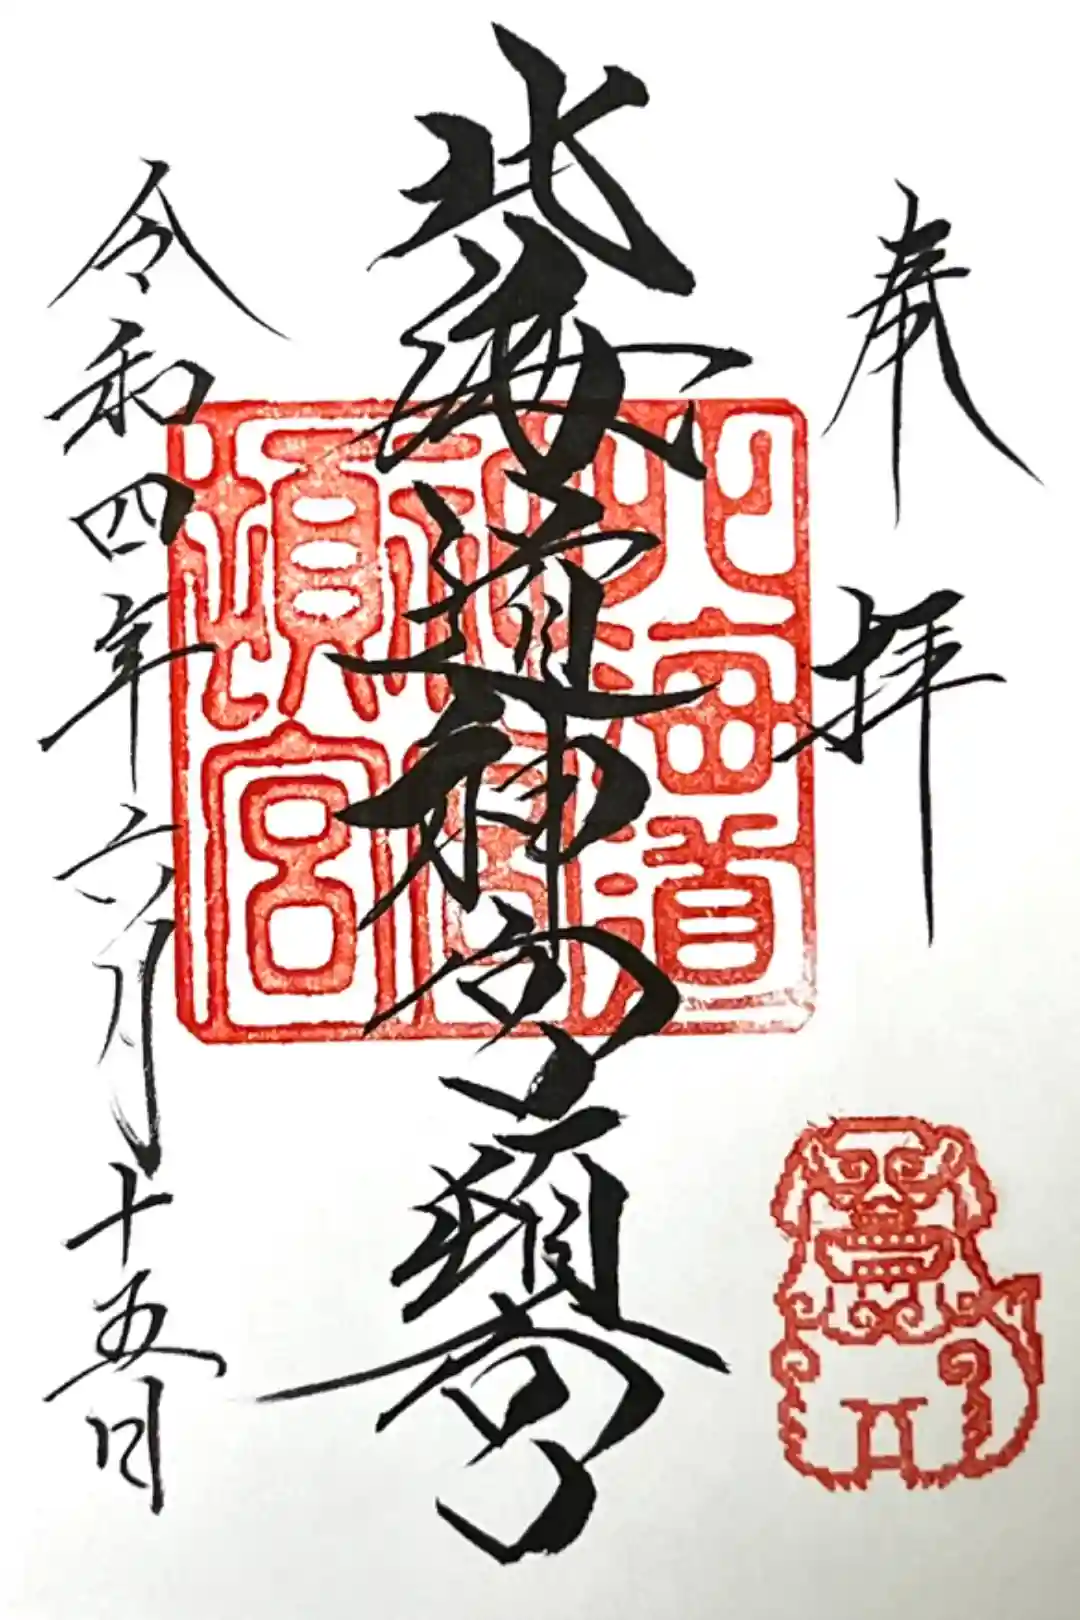 奉拝
北海道神宮頓宮
北海道
神宮
頓宮
令和四年六月十五日